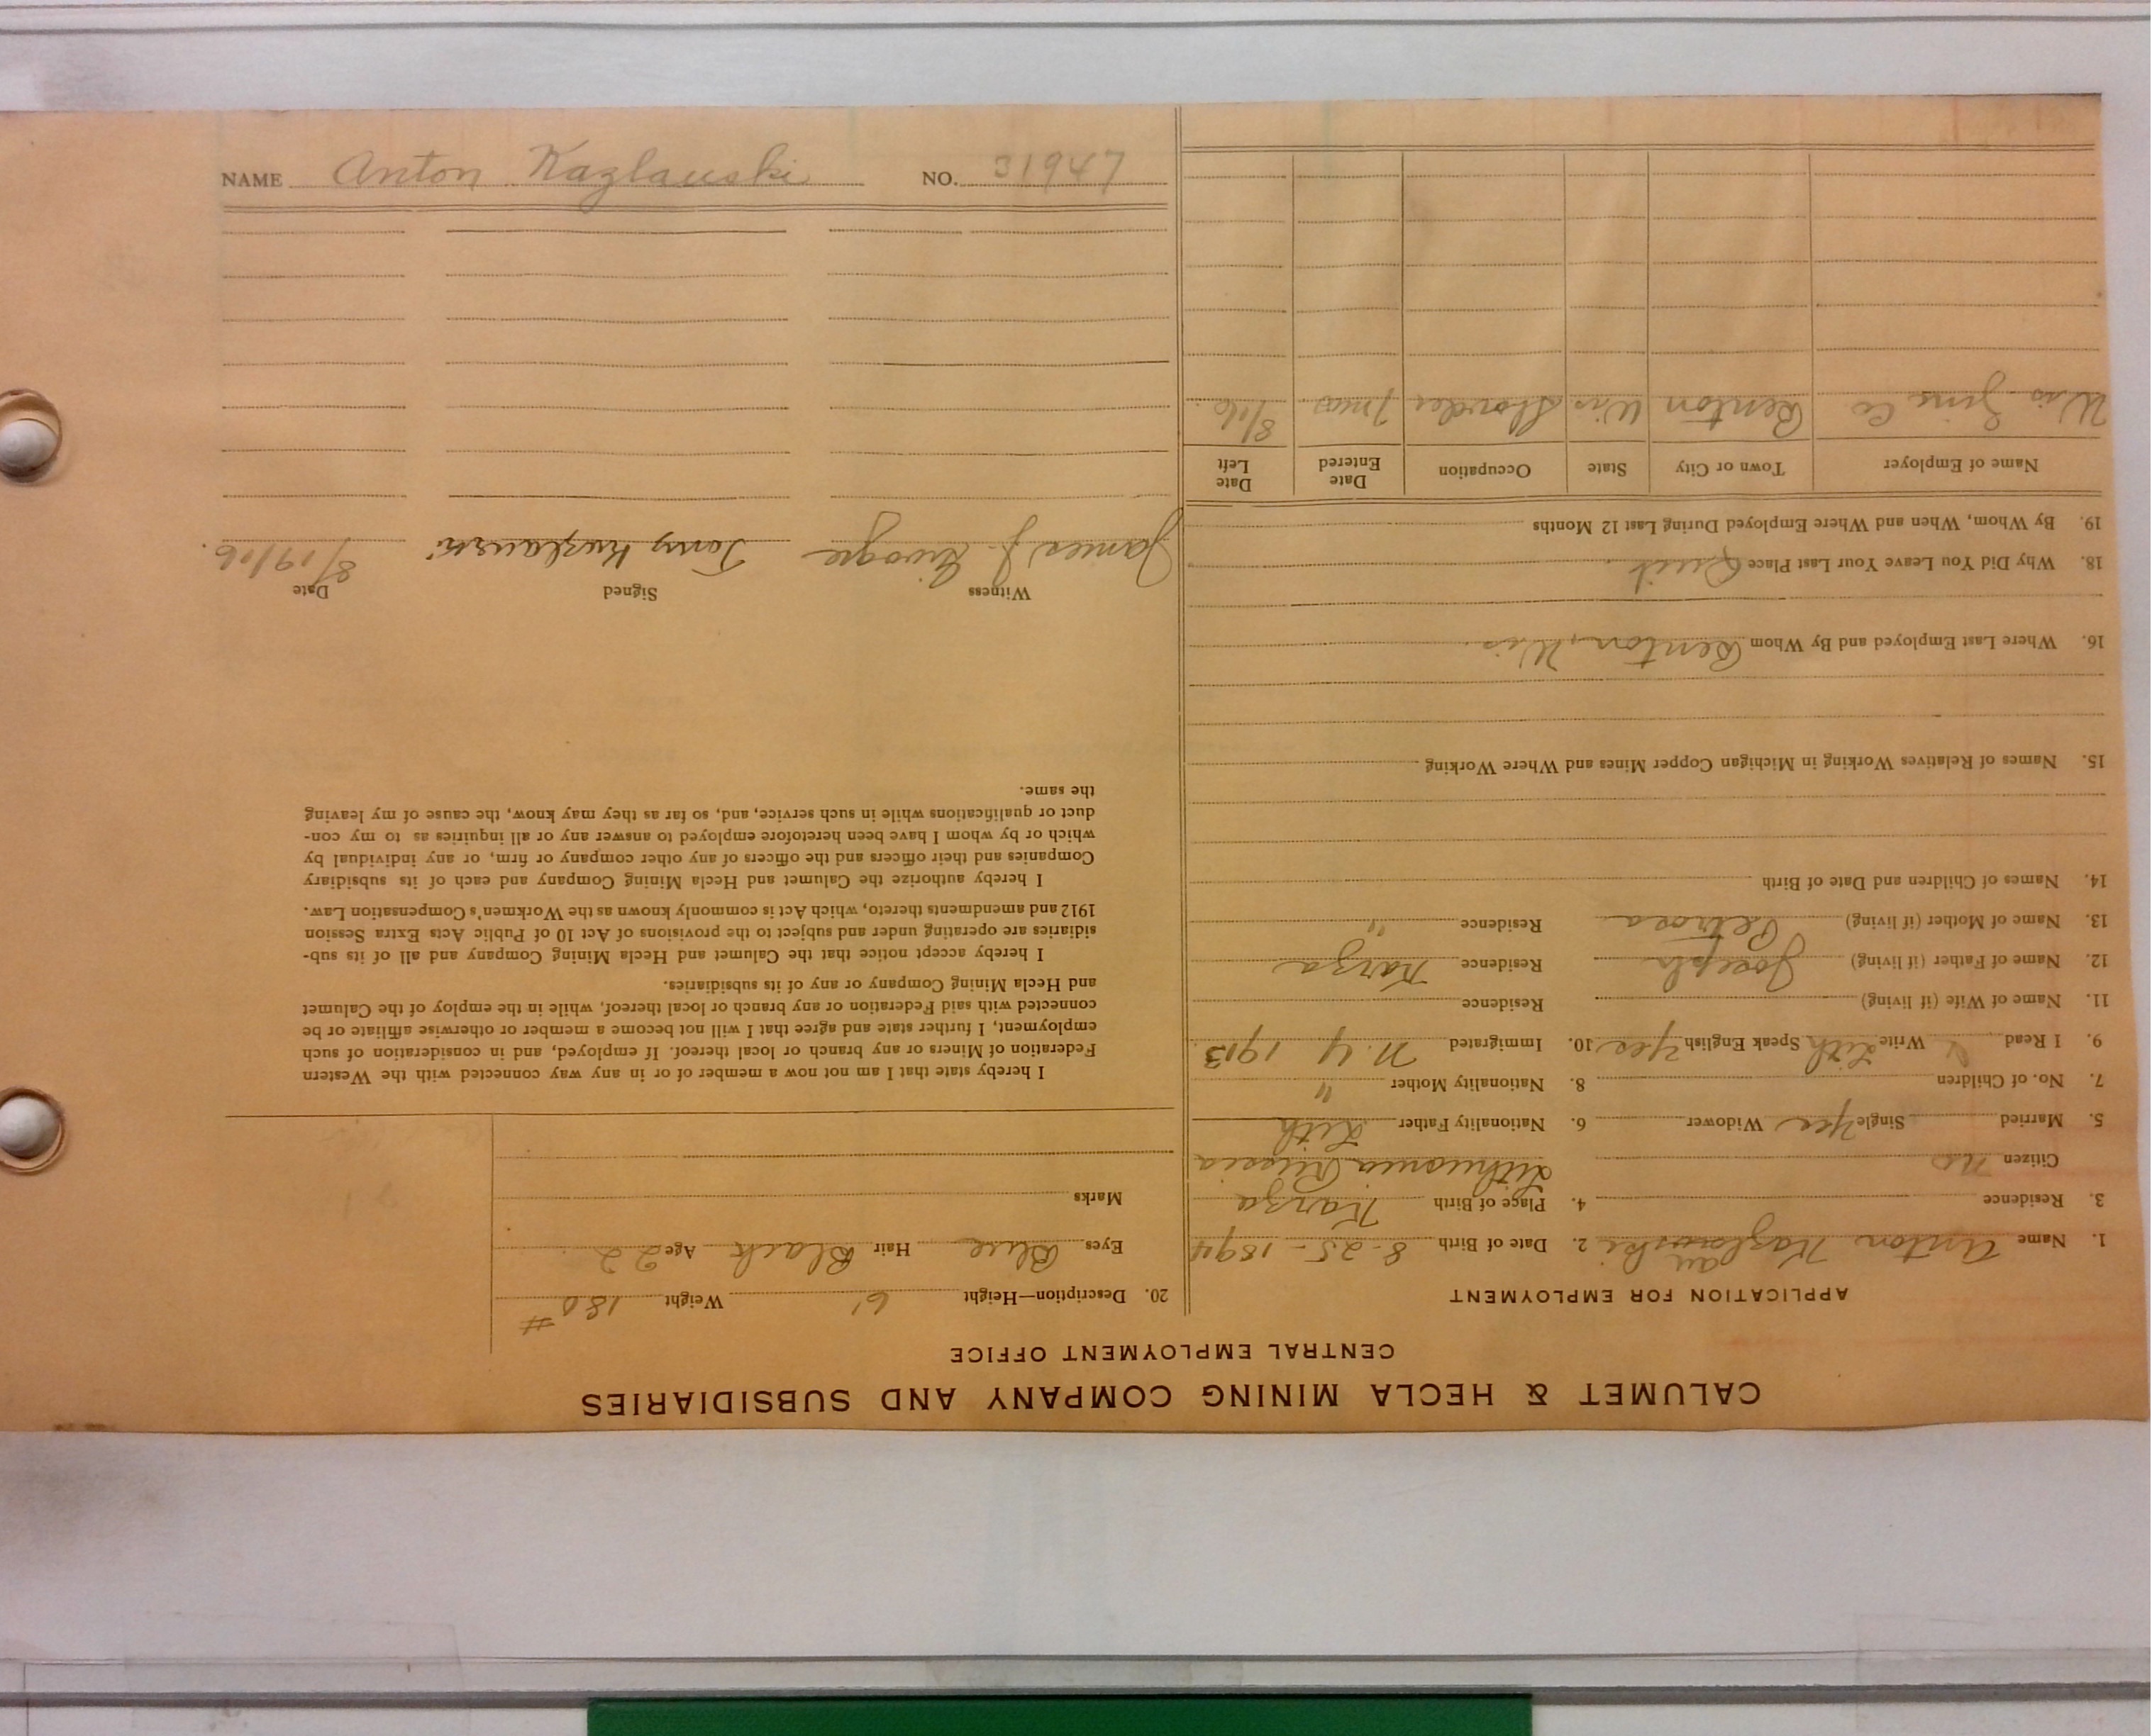 CALUMET & HECLA MINING COMPANY AND SUBSIDIARIES
CENTRAL EMPLOYMENT OFFICE
APPLICATION FOR EMPLOYMENT
1. Name Anton Kazlauski 2. Date of Birth 8-25-1894
3. Residence 4. Place of Birth Karza
Citizen no Lithuania Russia
5. Married Single Yes Widower 6. Nationality Father Lith
7. No. of Children 8. Nationality Mother "
9. I Read Write Lith Speak English Yes 10. Immigrated N.Y 1913
11. Name of Wife (if living) Residence
12. Name of Father (if living) Joseph Residence Karza
13. Name of Mother (if living) Petrosa Residence "
14. Names of Children and Date of Birth
15. Names of Relatives Working in Michigan Copper Mines and Where Working
16. Where Last Employed and By Whom Benton, Wis.
18. Why Did You Leave Your Last Place Quit
19. By Whom, When and Where Employed During Last 12 Months
Name of Employer Town or City State Occupation Date Entered Date Left
Wis Zinc Co Benton Wis Shoveler 7 mos 8/16.
20. Description—Height 6' Weight 180 #
Eyes Blue Hair Black Age 22
Marks
I hereby state that I am not now a member of or in any way connected with the Western
Federation of Miners or any branch or local thereof. If employed, and in consideration of such
employment, I further state and agree that I will not become a member or otherwise affiliate or be
connected with said Federation or any branch or local thereof, while in the employ of the Calumet
and Hecla Mining Company or any of its subsidiaries.
I hereby accept notice that the Calumet and Hecla Mining Company and all of its sub-
sidiaries are operating under and subject to the provisions of Act 10 of Public Acts Extra Session
1912 and amendments thereto, which Act is commonly known as the Workmen's Compensation Law.
I hereby authorize the Calumet and Hecla Mining Company and each of its subsidiary
Companies and their officers and the officers of any other company or firm, or any individual by
which or by whom I have been heretofore employed to answer any or all inquiries as to my con-
duct or qualifications while in such service, and, so far as they may know, the cause of my leaving
the same.
Date Signed Witness
8/19/16. Tony Kazlauski James J.
NAME Anton Kazlauski NO. 31947